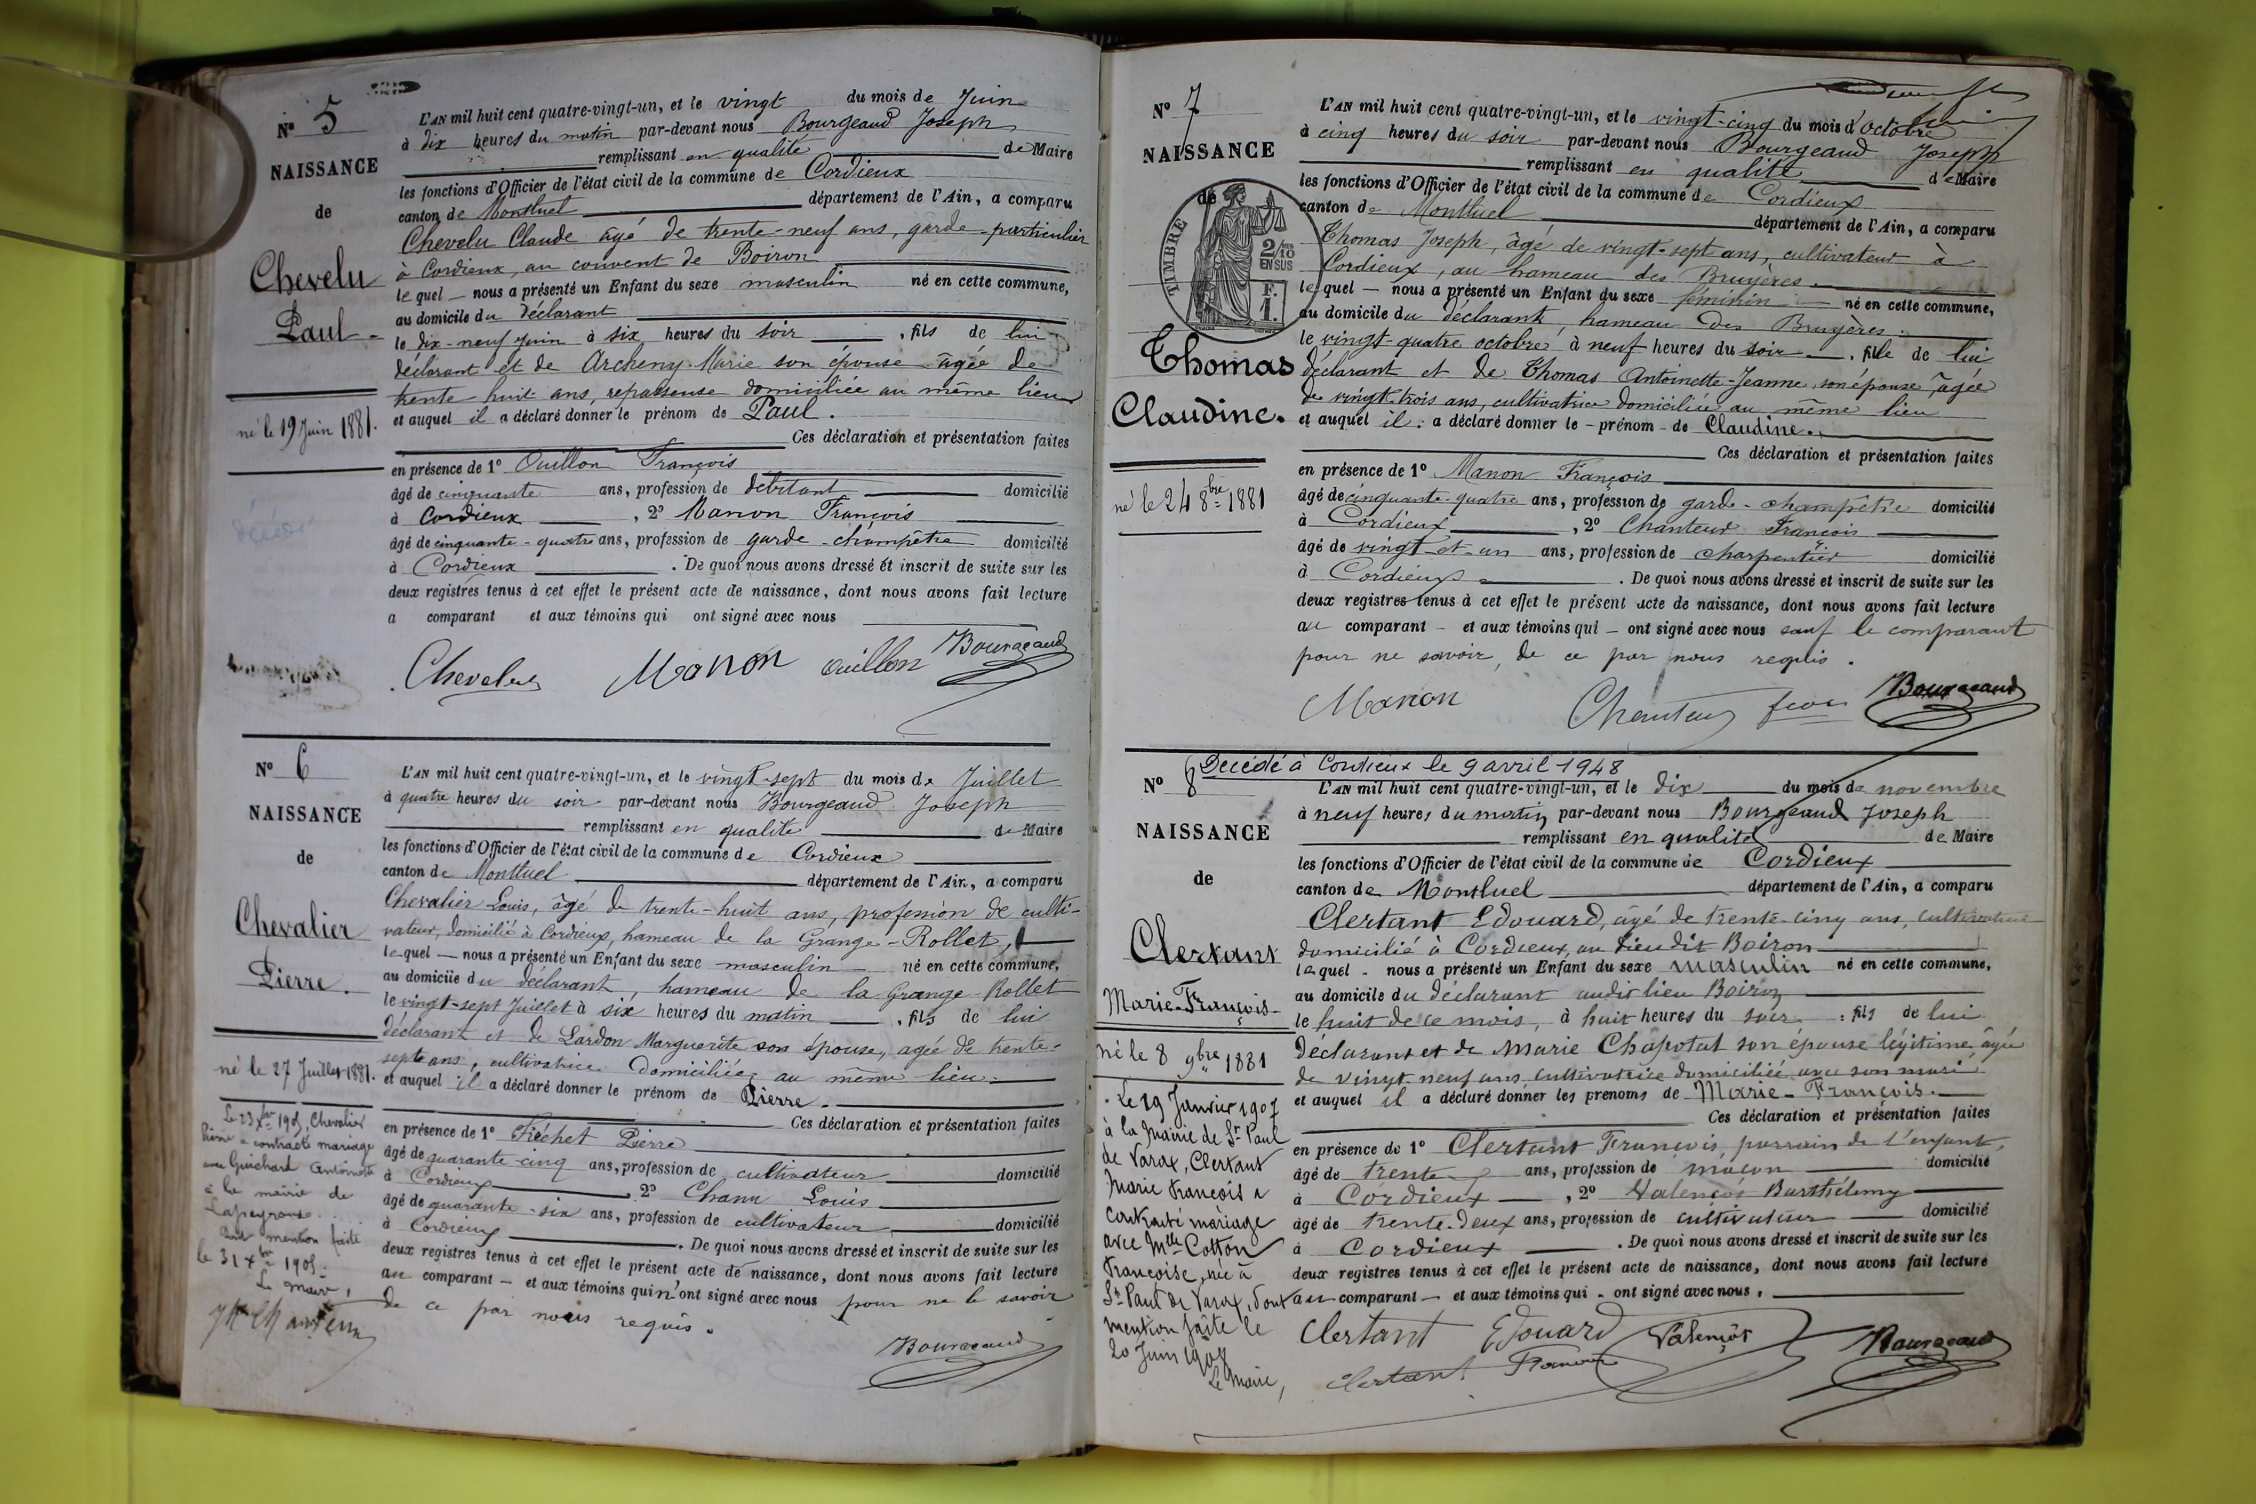 N° 5
NAISSANCE
de
Chevelu
Paul
né le 19 Juin 1881.
L'AN mil huit cent quatre-vingt-un, et le vingt du mois de Juin
à dix heures du matin par-devant nous Bourgeaud Joseph
remplissant en qualité de Maire
les fonctions d'Officier de l'état civil de la commune de Cordieux
canton de Montluel département de l'Ain, a comparu
Chevelu Claude âgé de trente-neuf ans, garde-particulier
à Cordieux, au couvent de Boiron
lequel nous a présenté un Enfant du sexe masculin né en cette commune,
au domicile du déclarant
le dix-neuf Juin à six heures du soir, fils de lui
déclarant et de Archeny Marie son épouse âgée de
trente huit ans, repasseuse domiciliée au même lieu
et auquel il a déclaré donner le prénom de Paul.
Ces déclaration et présentation faites
en présence de 1° Ouillon François
âgé de cinquante ans, profession de débitant domicilié
à Cordieux, 2° Manon François
âgé de cinquante-quatre ans, profession de garde-champêtre domicilié
à Cordieux. De quoi nous avons dressé et inscrit de suite sur les
deux registres tenus à cet effet le présent acte de naissance, dont nous avons fait lecture
a comparant et aux témoins qui ont signé avec nous
Chevelu Manon Ouillon Bourgeaud
N° 6
NAISSANCE
de
Chevalier
Pierre.
né le 27 Juillet 1881.
Le 23 Xbre 1905, Chevalier
Pierre a contracté mariage
avec Guichard Antoinette
à la mairie de
Lapeyrouse.
mention faite
le 31 Xbre 1905.
Le Maire,
L'AN mil huit cent quatre-vingt-un, et le vingt-sept du mois de Juillet
à quatre heures du soir par-devant nous Bourgeaud Joseph
remplissant en qualité de Maire
les fonctions d'Officier de l'état civil de la commune de Cordieux
canton de Montluel département de l'Ain, a comparu
Chevalier Louis, âgé de trente-huit ans, profession de culti-
vateur, domicilié à Cordieux, hameau de la Grange-Rollet,
lequel nous a présenté un Enfant du sexe masculin né en cette commune,
au domicile du déclarant, hameau de la Grange Rollet
le vingt-sept Juillet à six heures du matin, fils de lui
déclarant et de Lardon Marguerite son épouse, agée de trente-
sept ans, cultivatrice domiciliée au même lieu.
et auquel il a déclaré donner le prénom de Pierre.
Ces déclaration et présentation faites
en présence de 1° Fréchet Pierre
âgé de quarante-cinq ans, profession de cultivateur domicilié
à Cordieux 2° Chanu Louis
âgé de quarante-six ans, profession de cultivateur domicilié
à Cordieux. De quoi nous avons dressé et inscrit de suite sur les
deux registres tenus à cet effet le présent acte de naissance, dont nous avons fait lecture
au comparant et aux témoins qui n'ont signé avec nous pour ne le savoir
de ce par nous requis.
Bourgeaud
N° 7
NAISSANCE
de
TIMBRE
2/10
EN SUS
F.
1.
Thomas
Claudine.
né le 24 8bre 1881
L'AN mil huit cent quatre-vingt-un, et le vingt-cinq du mois d'octobre
à cinq heures du soir par-devant nous Bourgeaud Joseph
remplissant en qualité de Maire
les fonctions d'Officier de l'état civil de la commune de Cordieux
canton de Montluel département de l'Ain, a comparu
Thomas Joseph, âgé de vingt-sept ans, cultivateur à
Cordieux, au hameau des Bruyères.
lequel nous a présenté un Enfant du sexe féminin né en cette commune,
au domicile du déclarant, hameau des Bruyères.
le vingt-quatre octobre à neuf heures du soir, fille de lui
déclarant et de Thomas Antoinette-Jeanne son épouse, âgée
de vingt-trois ans, cultivatrice domiciliée au même lieu
et auquel il a déclaré donner le prénom de Claudine.
Ces déclaration et présentation faites
en présence de 1° Manon François
âgé de cinquante-quatre ans, profession de garde-champêtre domicilié
à Cordieux, 2° Chanteur François
âgé de vingt-et-un ans, profession de charpentier domicilié
à Cordieux. De quoi nous avons dressé et inscrit de suite sur les
deux registres tenus à cet effet le présent acte de naissance, dont nous avons fait lecture
au comparant et aux témoins qui ont signé avec nous sauf le comparant
pour ne savoir, de ce par nous requis.
Manon Chanteur Bourgeaud
Décédé à Cordieux le 9 avril 1948
N° 8
NAISSANCE
de
Clertant
Marie-François
né le 8 9bre 1881
Le 19 Janvier 1907
à la Mairie de St Paul
de Varax, Clertant
Marie François a
contracté mariage
avec Mlle Cotton
Françoise, née à
St Paul de Varax, dont
mention faite le
20 Juin 1908
Le Maire,
L'AN mil huit cent quatre-vingt-un, et le dix du mois de novembre
à neuf heures du matin par-devant nous Bourgeaud Joseph
remplissant en qualité de Maire
les fonctions d'Officier de l'état civil de la commune de Cordieux
canton de Montluel département de l'Ain, a comparu
Clertant Edouard, âgé de trente-cinq ans, cultivateur
domicilié à Cordieux, au lieu dit Boiron
lequel nous a présenté un Enfant du sexe masculin né en cette commune,
au domicile du déclarant audit lieu Boiron
le huit de ce mois, à huit heures du soir, fils de lui
déclarant et de Marie Chapotat son épouse légitime, âgée
de vingt-neuf ans cultivatrice domiciliée avec son mari
et auquel il a déclaré donner les prénoms de Marie-François.
Ces déclaration et présentation faites
en présence de 1° Clertant François, parrain de l'enfant,
âgé de trente ans, profession de maçon domicilié
à Cordieux, 2° Valençot Barthélemy
âgé de trente-deux ans, profession de cultivateur domicilié
à Cordieux. De quoi nous avons dressé et inscrit de suite sur les
deux registres tenus à cet effet le présent acte de naissance, dont nous avons fait lecture
au comparant et aux témoins qui ont signé avec nous.
Clertant Edouard Valençot Bourgeaud
Clertant François